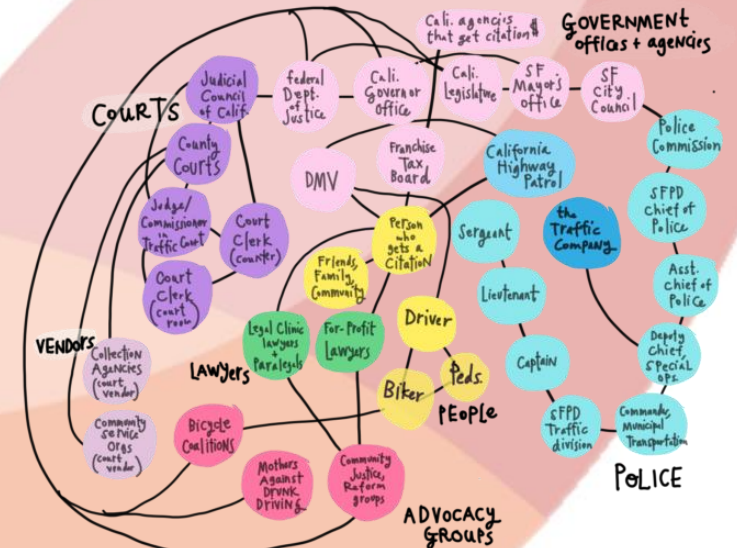 Cali. agencies
that get citation $
GOVERNMENT
offices + agencies
COURTS
Judicial
Council
of Calif.
federal
Dept.
of
Justice
Cali.
Governor
Office
Cali.
Legislature
SF
Mayor's
office
SF
City
Council
Police
Commission
County
Courts
DMV
Franchise
Tax
Board
California
Highway
Patrol
SFPD
Chief of
Police
Judge/
Commissioner
in
Traffic Court
Court
Clerk
(counter)
Person
who
gets a
Citation
Sergeant
the
Traffic
Company
Friends,
Family,
Community
Asst.
chief of
Police
Court
Clerk
(court
room)
Lieutenant
VENDORS
Collection
Agencies
(court
vendor)
LAWYERS
Legal Clinic
lawyers
+
Paralegals
For-Profit
Lawyers
Driver
Captain
Deputy
Chief,
Special
ops.
Biker
Peds.
PEOPLE
Community
Service
Orgs
(court
vendor)
Bicycle
Coalitions
SFPD
Traffic
division
Commander,
Municipal
Transportation
POLICE
Mothers
Against
Drunk
Driving
Community
Justice,
Reform
groups
ADVOCACY
GROUPS